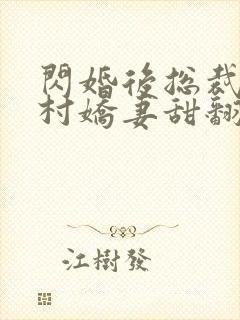 閃婚後総裁
村嬌妻甜翻
江樹發